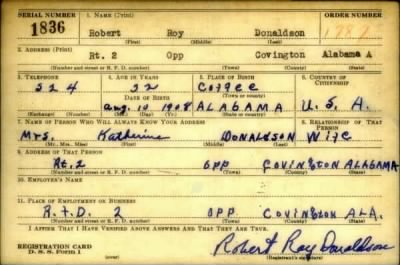 SERIAL NUMBER 1. NAME (Print) ORDER NUMBER
1836 Robert Roy Donaldson
(First) (Middle) (Last)
2. ADDRESS (Print)
Rt. 2 Opp Covington Alabama
(Number and street or R. F. D. number) (Town) (County) (State)
3. TELEPHONE 4. AGE IN YEARS 5. PLACE OF BIRTH 6. COUNTRY OF CITIZENSHIP
524 32 Coffee
DATE OF BIRTH (Town or county)
Aug. 10 1908 ALABAMA U. S. A.
(Exchange) (Number) (Mo.) (Day) (Yr.) (State or country)
7. NAME OF PERSON WHO WILL ALWAYS KNOW YOUR ADDRESS 8. RELATIONSHIP OF THAT PERSON
Mrs. Katherine DONALDSON Wife
(Mr., Mrs., Miss) (First) (Middle) (Last)
9. ADDRESS OF THAT PERSON
Rt. 2 OPP COVINGTON ALABAMA
(Number and street or R. F. D. number) (Town) (County) (State)
10. EMPLOYER'S NAME
11. PLACE OF EMPLOYMENT OR BUSINESS
R.F.D. 2 OPP. COVINGTON ALA.
(Number and street or R. F. D. number) (Town) (County) (State)
I AFFIRM THAT I HAVE VERIFIED ABOVE ANSWERS AND THAT THEY ARE TRUE.
REGISTRATION CARD
D. S. S. FORM 1
Robert Roy Donaldson
(Registrant's signature)